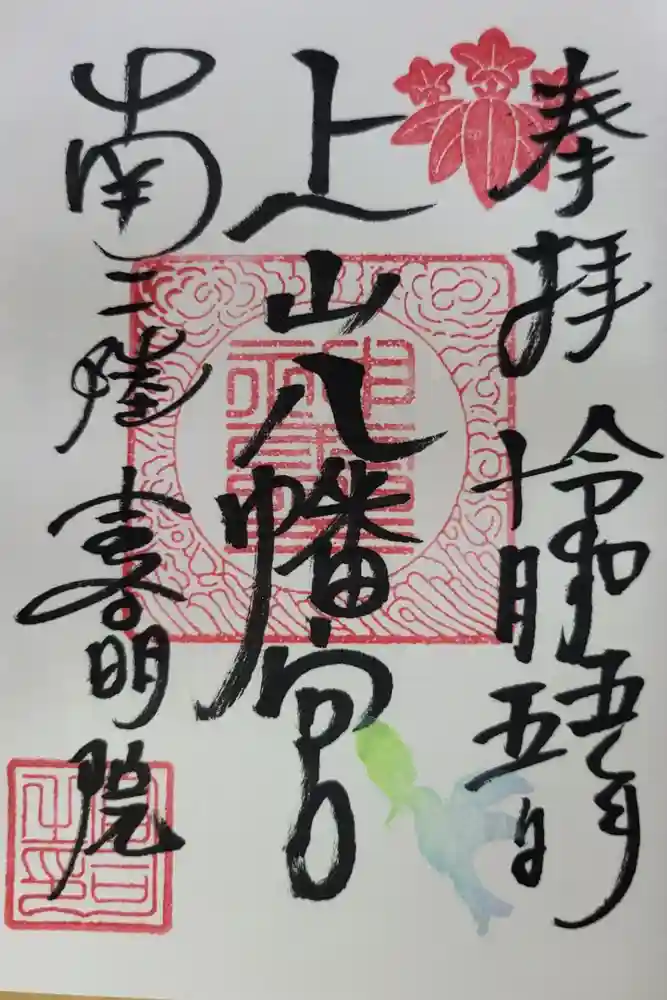 奉拝
令和五年
十月五日
上山八幡宮
南三陸 喜明院